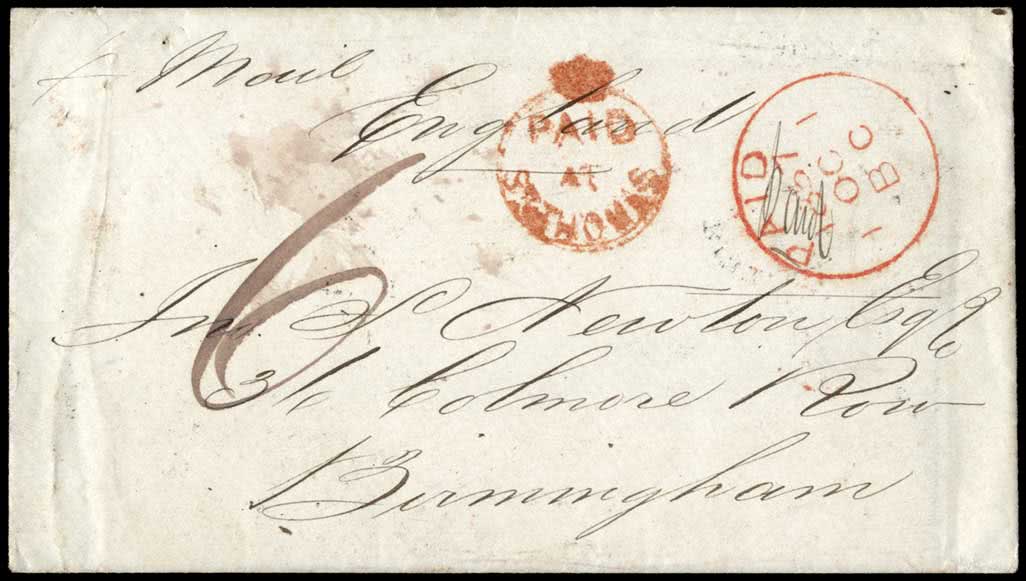 p Mail
England
PAID
AT
ST THOMAS
PAID
OC
BC
Paid
6
Newton Esqre
Colmore Row
Birmingham